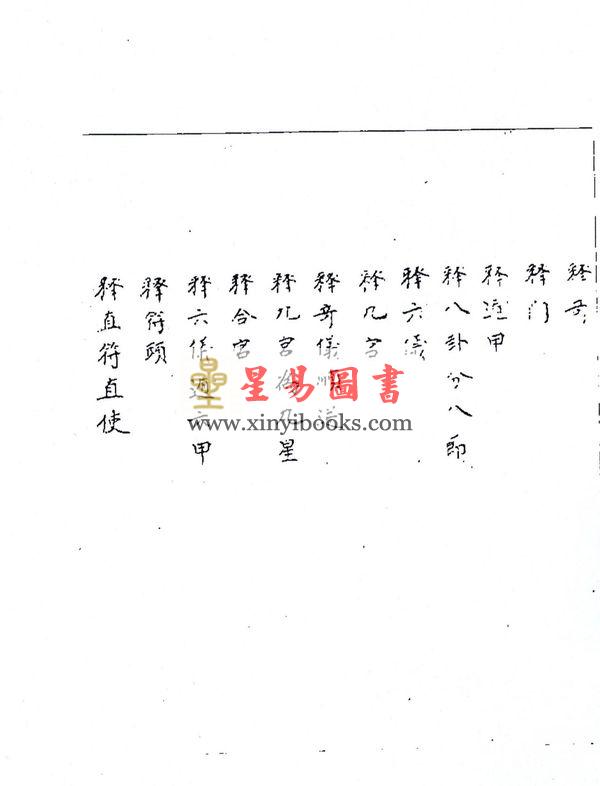 释奇
释门
释遁甲
释八卦分八節
释六儀
释九宫
释奇儀順逆
释九宫為九星
释合宫
释六儀遁六甲
释符頭
释直符直使
星易圖書
www.xinyibooks.com